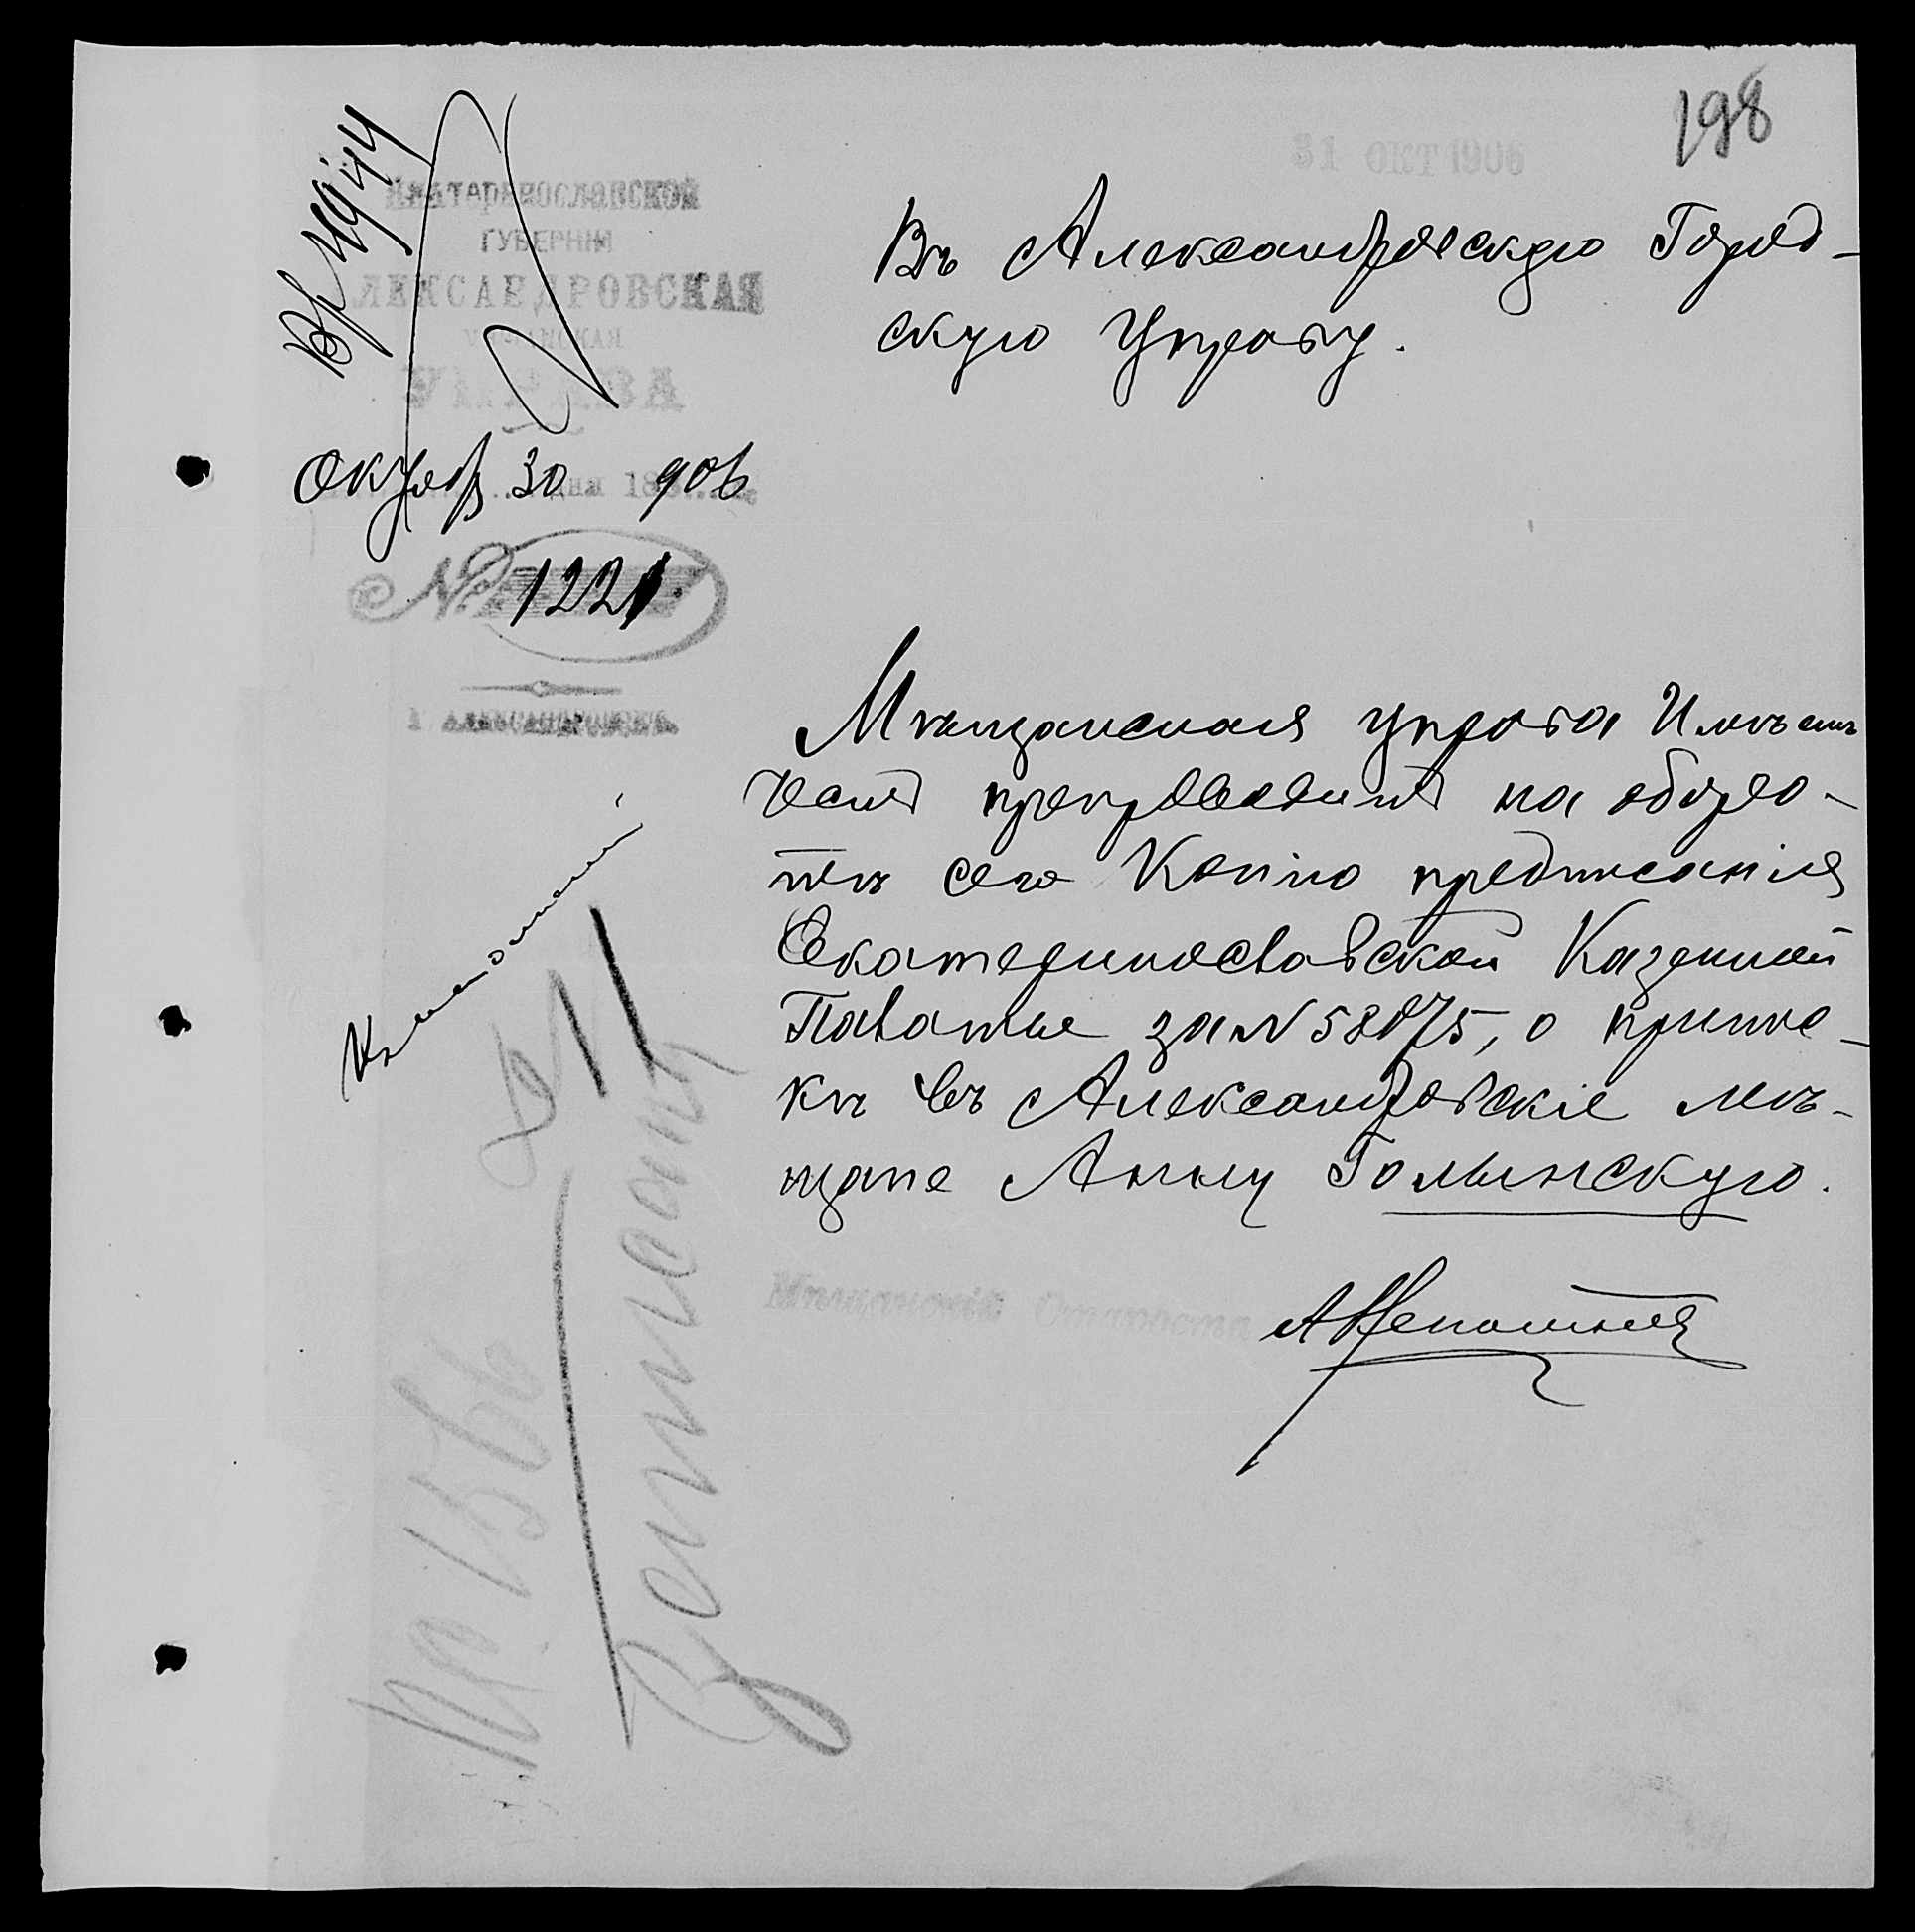 198
31 ОКТ 1906
Екатеринославской
ГУБЕРНІИ
АЛЕКСАНДРОВСКАЯ
МѢЩАНСКАЯ
УПРАВА
Октяб 30 906
№ 1221
Г. АЛЕКСАНДРОВСКЪ
Въ Александровскую Город-
скую Управу.
Мѣщанская управа Имѣетъ
честь препроводить на оборо-
тѣ сего Копію предписанія
Екатеринославской Казенной
Палаты за № 58875, о припис-
кѣ въ Александровскіе мѣ-
щане Анну Голынскую.
Мѣщанскій Староста